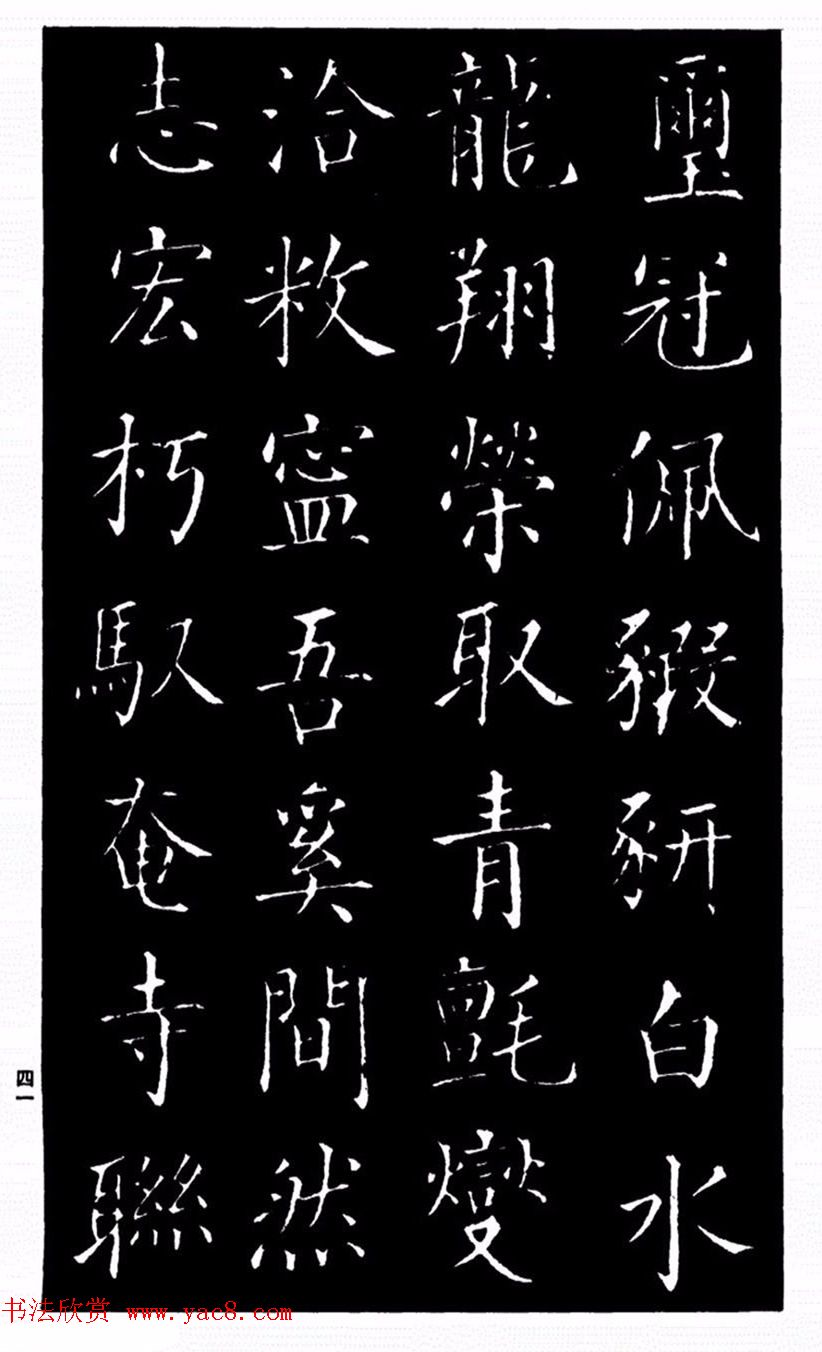 璽冠佩豭豣白水
龍翔榮取青氈燮
洽敉寍吾奚間然
志宏朽馭奄寺聯
四一
书法欣赏 www.yac8.com